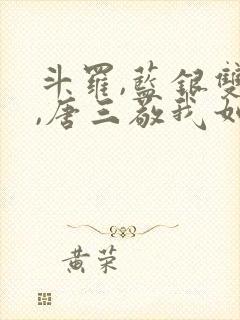 斗羅,藍銀雙
,唐三敬我如
黄荣